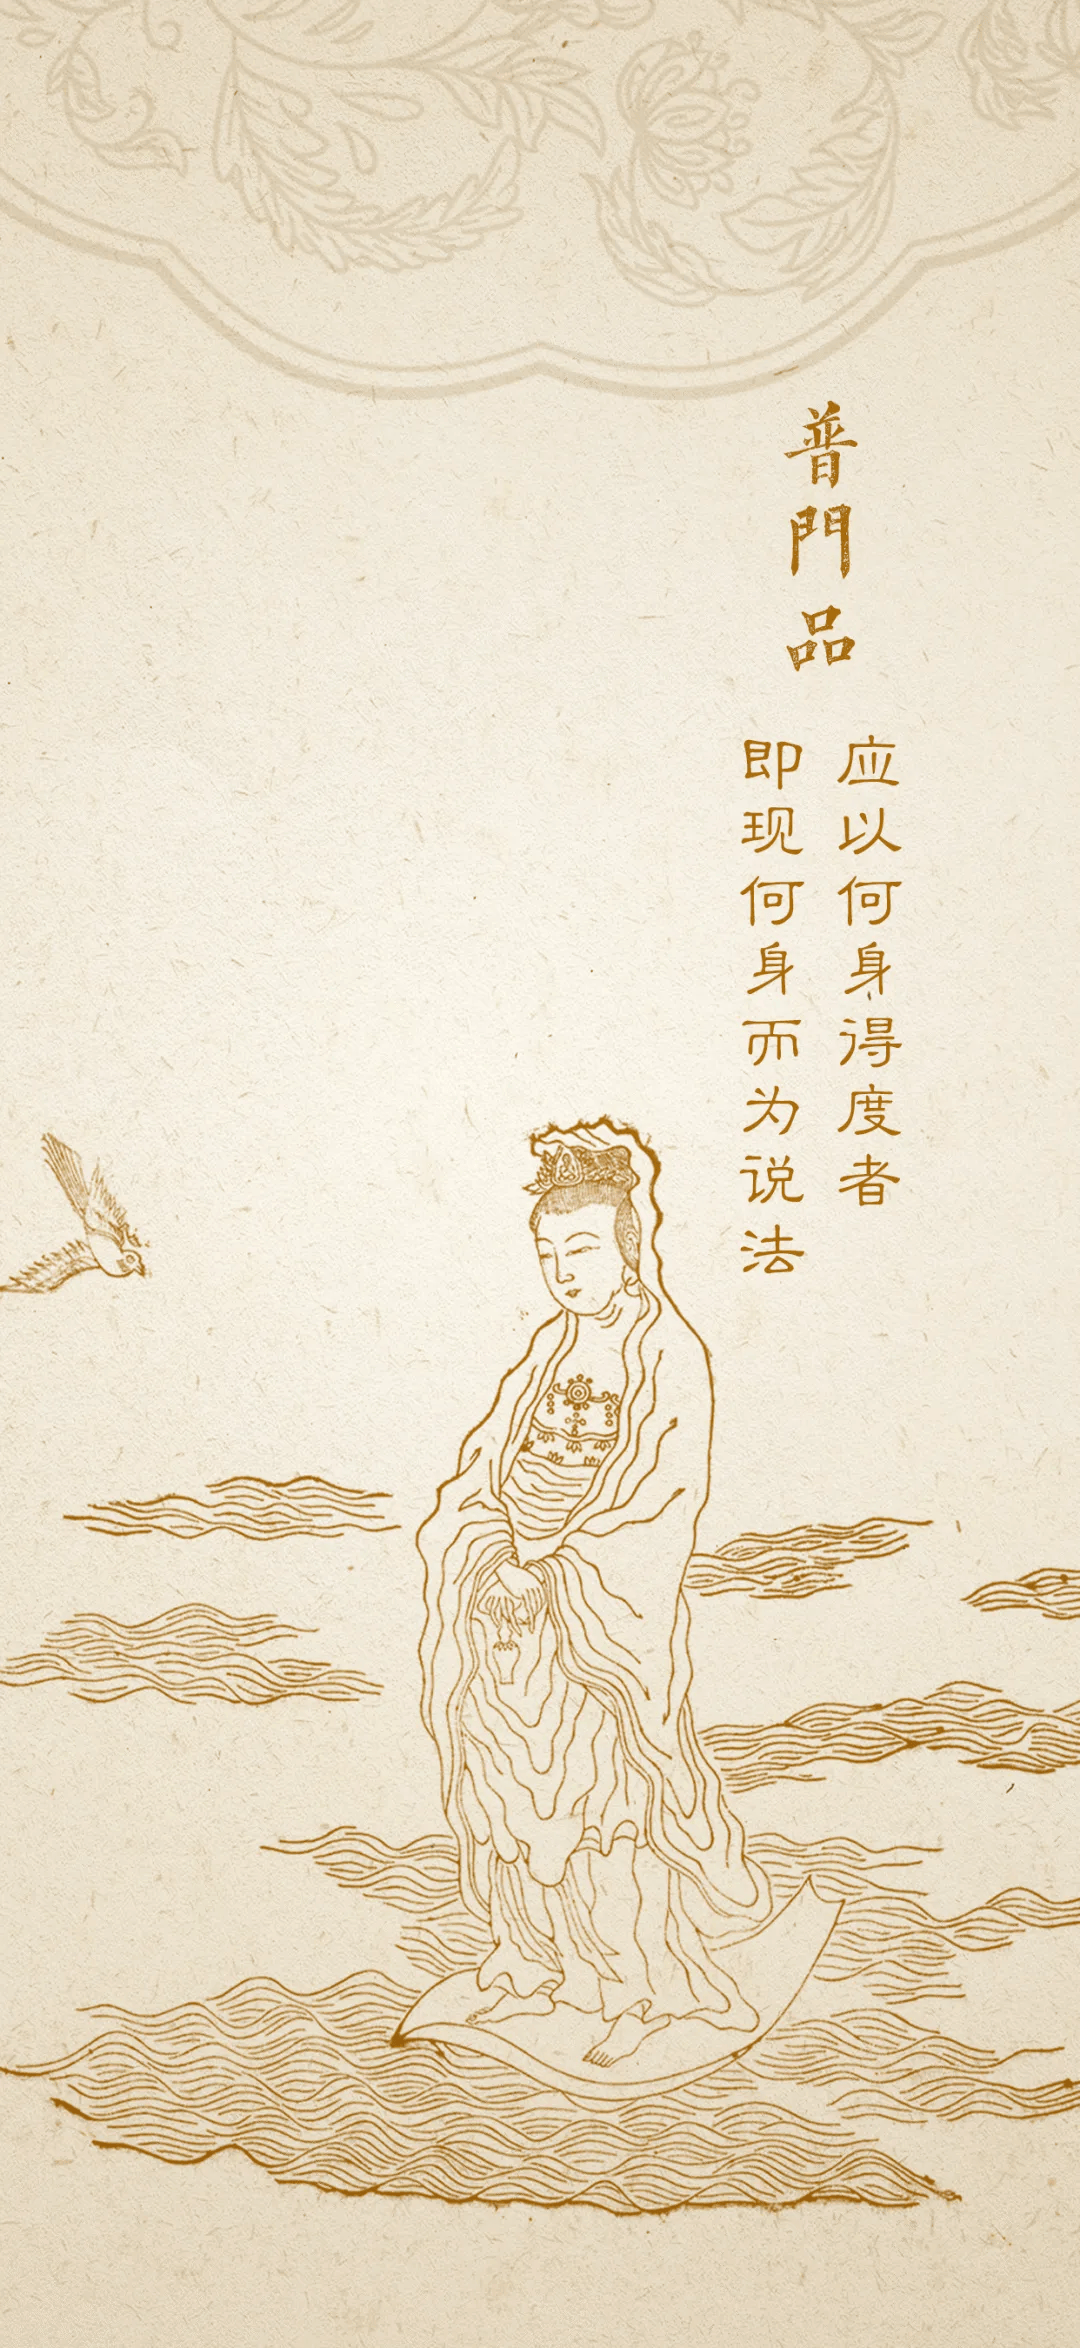 普門品
应以何身得度者
即现何身而为说法